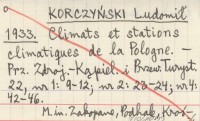 KORCZYŃSKI Ludomił
1933. Climats et stations
climatiques de la Pologne. –
Prz. Zdroj.-Kąpiel. i Przew. Turyst.
22, nr 1: 9-12; nr 2: 23-24; nr 4:
42-46.
M. in. Zakopane, Podhale,